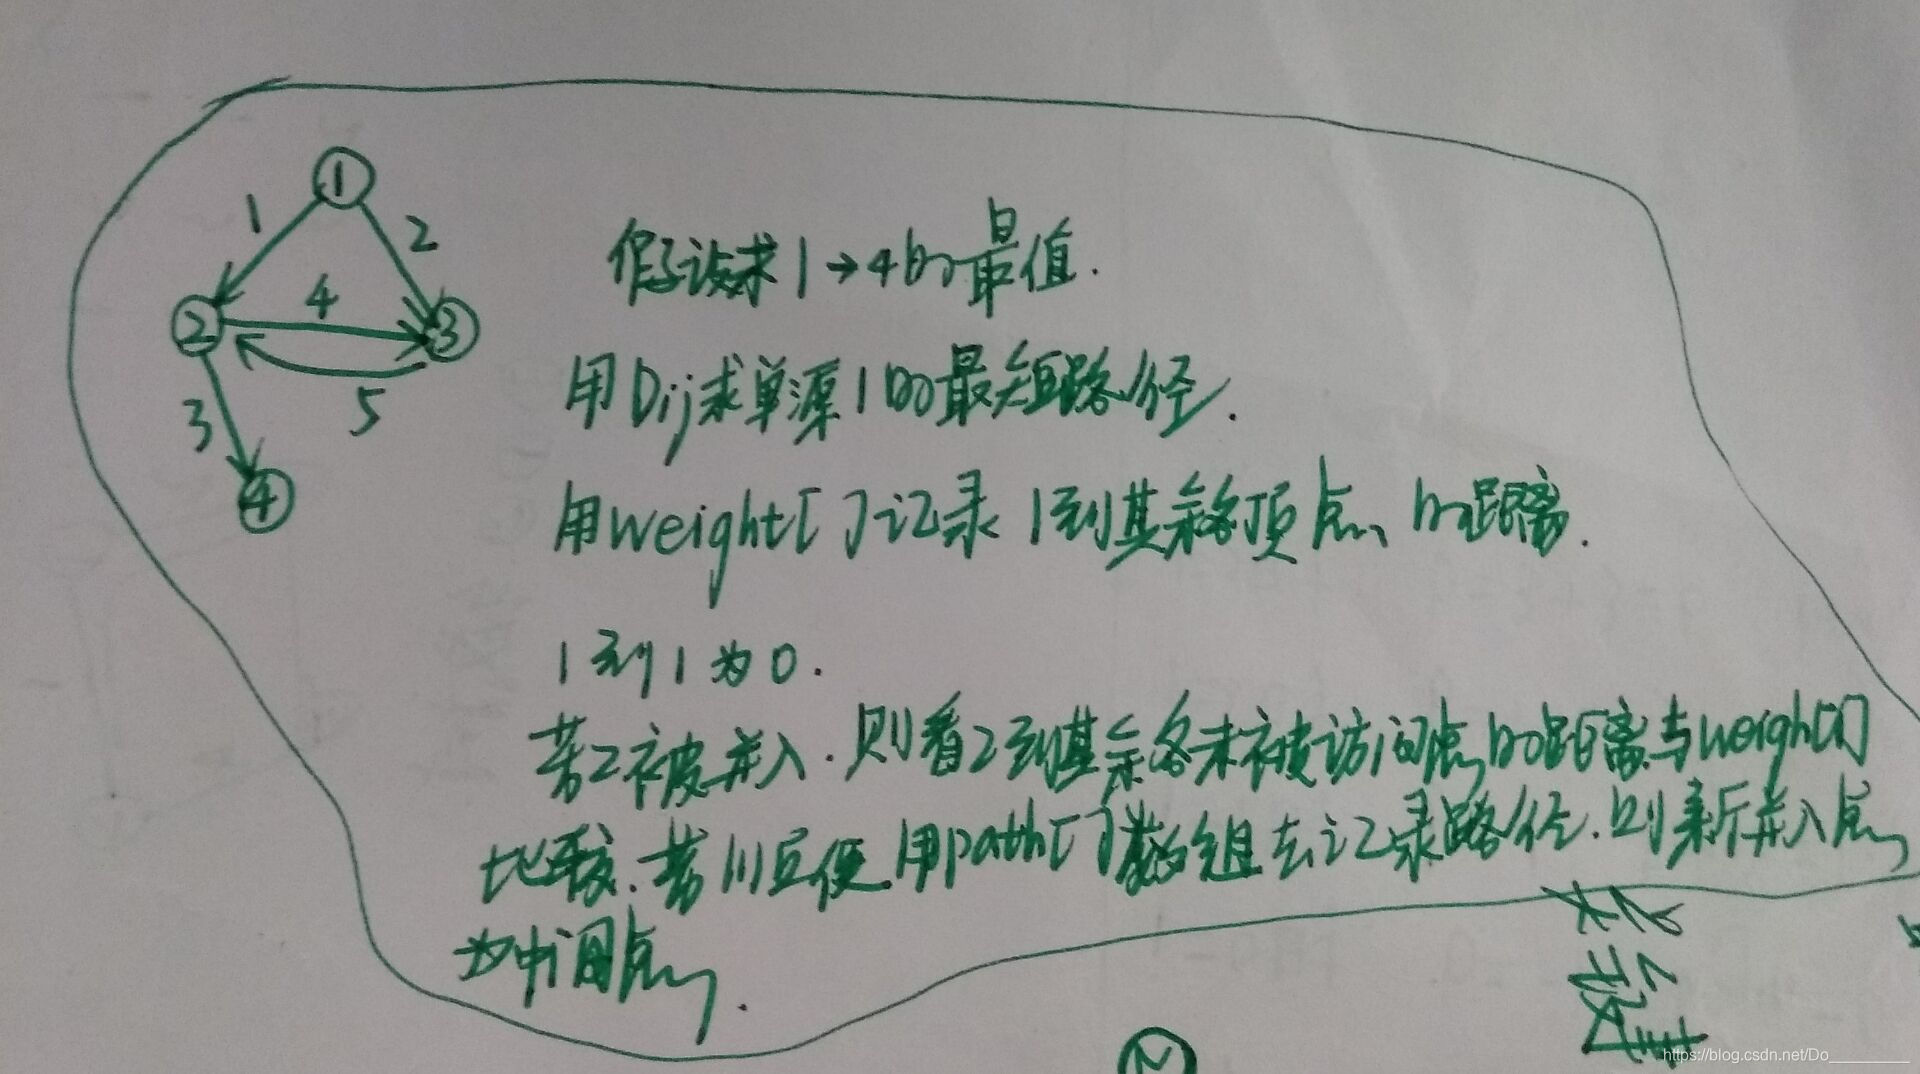 1
1
2
2
4
3
5
3
4
假设求1→4的最值.
用Dij求单源1的最短路径.
用weight[ ]记录1到其余各顶点的距离.
1到1为0.
若2被并入.则看2到其余各未被访问点的距离与weight[]
比较.若小后便用path[]数组去记录路径.则新并入点
为中间点.
2
https://blog.csdn.net/Do_________